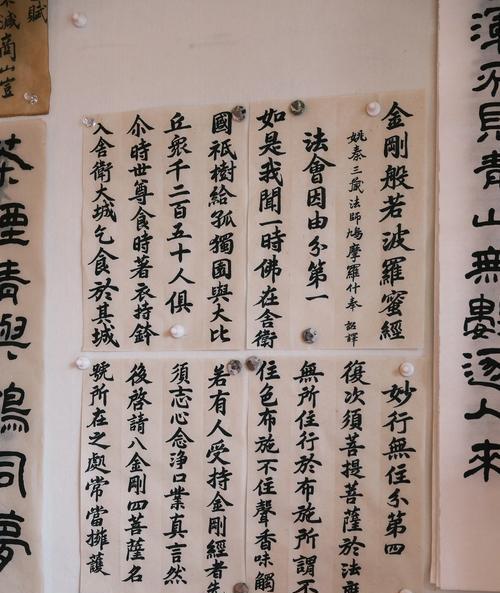 青山無數逐人來
金剛般若波羅蜜經
姚秦三藏法師鳩摩羅什奉 詔譯
法會因由分第一
如是我聞一時佛在舍衛
國祇樹給孤獨園與大比
丘眾千二百五十人俱
尒時世尊食時著衣持鉢
入舍衛大城乞食於其城
妙行無住分第四
復次須菩提菩薩於法應
無所住行於布施所謂不
住色布施不住聲香味觸
若有人受持金剛經者先
須志心念淨口業真言然
後啓請八金剛四菩薩名
號所在之處常當擁護
賦
茶煙青與鶴同夢